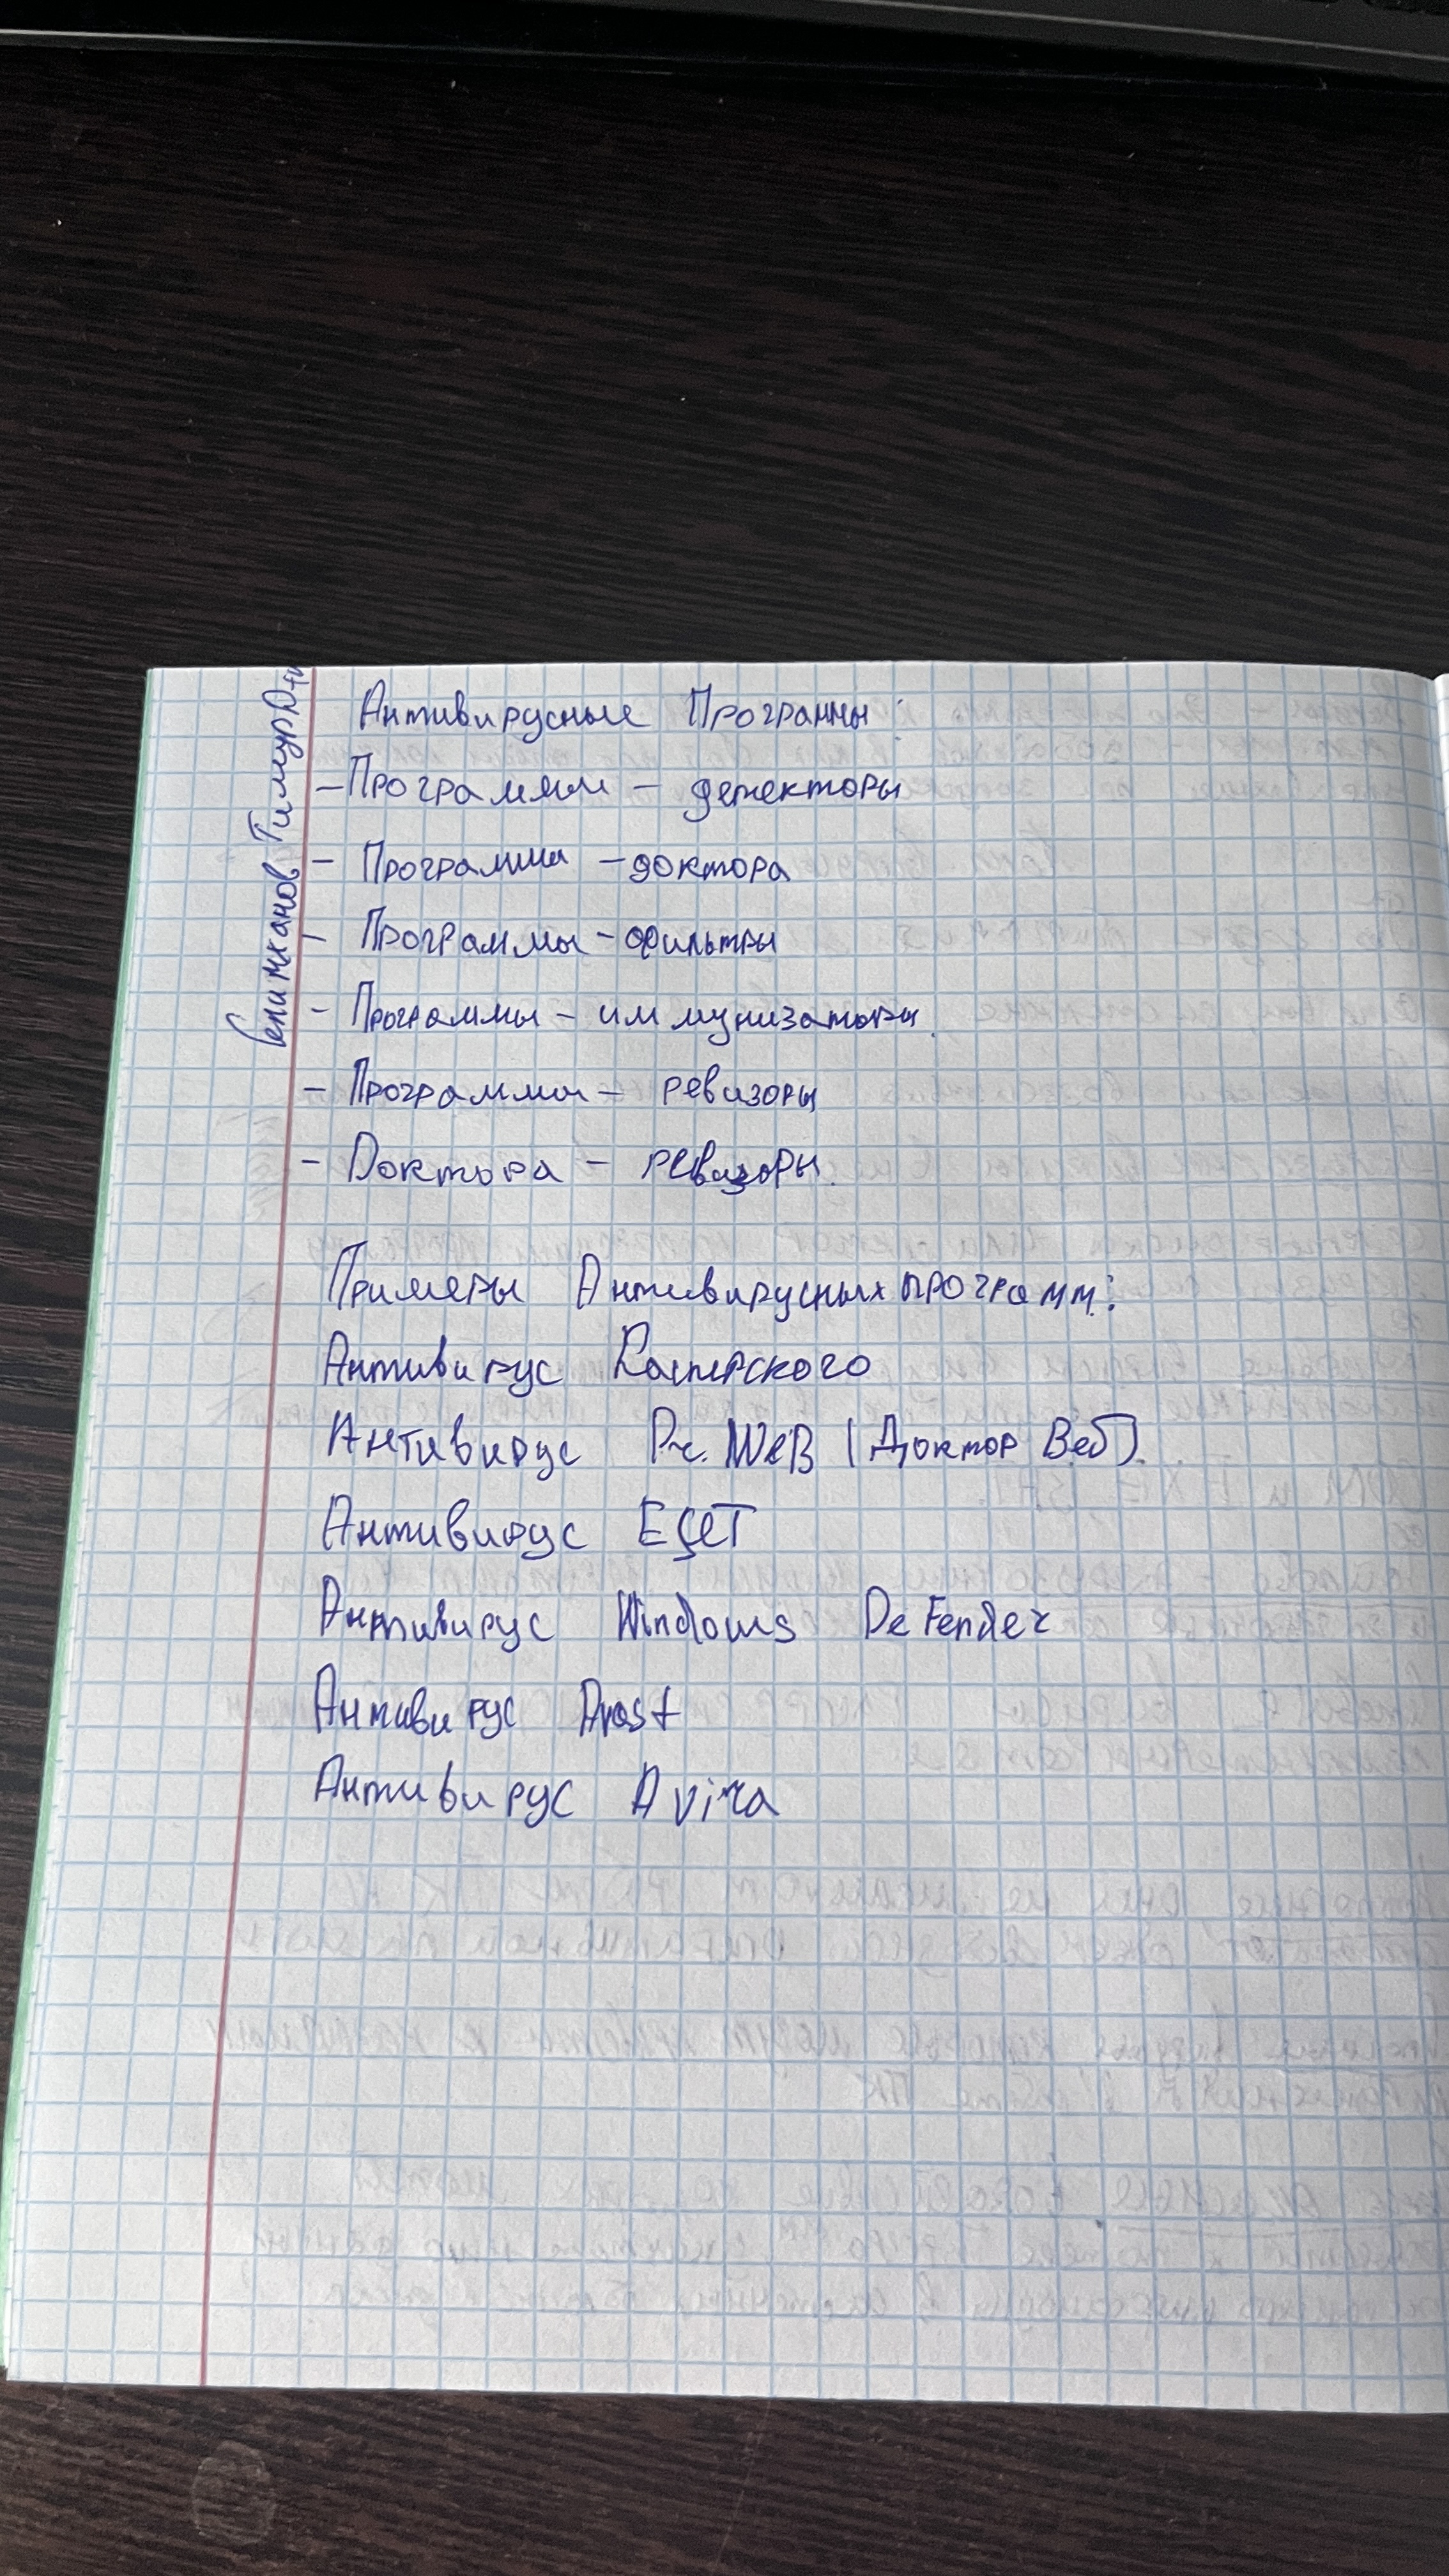 Антивирусные Программы:
- Программы - детекторы
- Программы - доктора
- Программы - фильтры
- Программы - иммунизаторы.
- Программы - ревизоры
- Доктора - ревизоры.
Примеры Антивирусных программ:
Антивирус Касперского
Антивирус Dr. WeB (Доктор Веб).
Антивирус ESET
Антивирус Windows DeFender
Антивирус Avast
Антивирус Avira
Селимханов Тимур